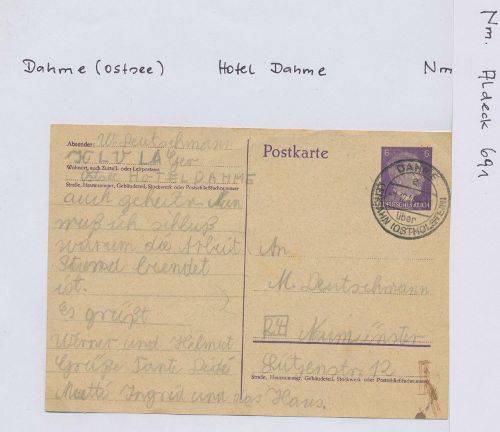 Dahme (Ostsee) Hotel Dahme Nm
Nm. Aldeck 691
Absender: W. Deutschmann
KLV LAger
Wohnort, auch Zustell- oder Leitpostamt
HOTEL DAHME
Straße, Hausnummer, Gebäudeteil, Stockwerk oder Postschließfachnummer
auch geheitr
muß ich schluß
warum die Arbeit
Stund beendet
ist.
Es grüßt
Werner und Helmut
Grüße Tante
Mutti Ingrid und das Haus.
Postkarte
6 6
DEUTSCHES REICH
DAHME
über
(OSTHOLSTEIN)
An
M. Deutschmann
24 Neumünster
Lützenstr. 12
Straße, Hausnummer, Gebäudeteil, Stockwerk oder Postschließfachnummer